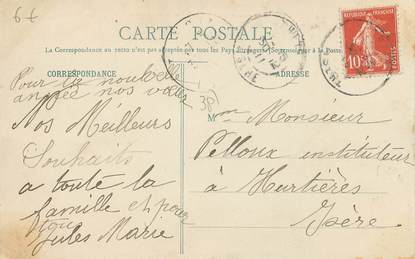 6€
CARTE POSTALE
La Correspondance au recto n'est pas acceptée par tous les Pays Étrangers (Se renseigner à la Poste)
CORRESPONDANCE
ADRESSE
RÉPUBLIQUE FRANÇAISE
10c
POSTES
Pour la nouvelle
année nos vœux
Nos Meilleurs
Souhaits
a toute la
famille et pour
tous
Jules Marie
3P
Mr Monsieur
Pelloux instituteur
à Hurtières
Isère